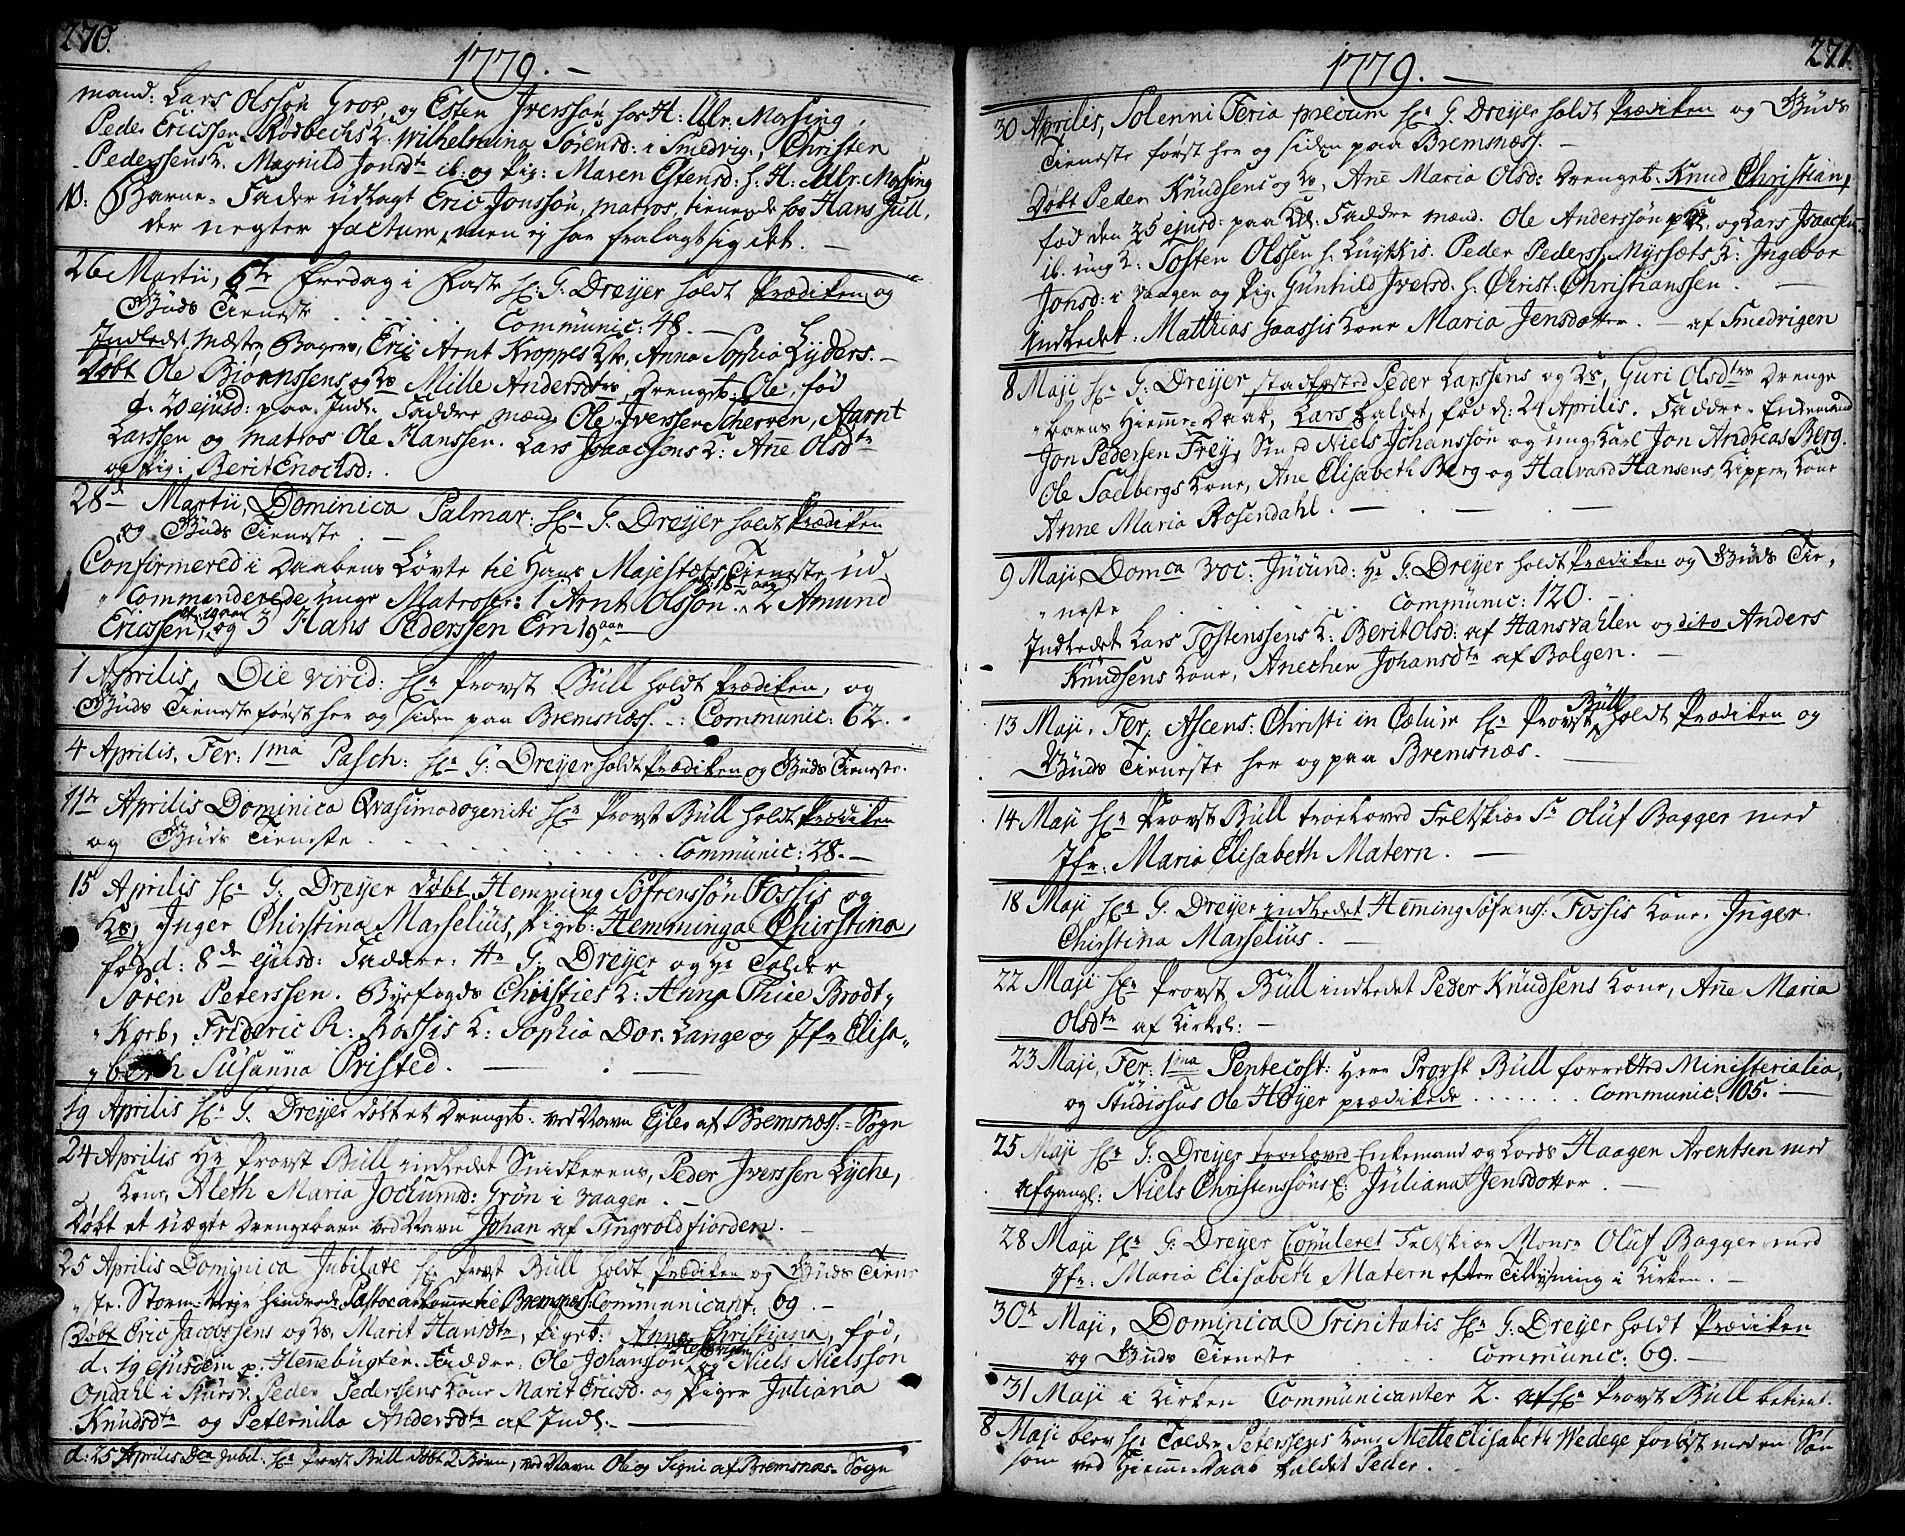 270.
1779. –
mand: Lars Olssøn Grov, og Esten Iverssøn hos H: Ulr: Mossing.
Peder Ericssen Rødbechs K: Wilhelmina Sørensd: i Smedvig, Christen
Pederssens K. Magnild Jonsdtr ib: og Pig: Maren Estensd: h. H: Ulr: Mossing
Barne-Fader udlagt Eric Jonssøn, matros, tienende hos Hans Jull,
der negter factum, men ej har fralagt sig det. –
26 Martii, 6te Fredag i Faste Hr: G: Dreyer holdt Prædiken og
Guds Tieneste . . . . . Communic: 48. –
Indledet Mester Bager, Eric Arnt Kroppes K, Anna Sophia Lyders. –
Døbt Ole Biørnssens og Ks Mille Andersdtrs Drengeb: Ole, fød
d. 20 ejusd: paa Indl. Faddre mænd Ole Iverssen Scherven, Aarnt
Larssen og matros Ole Hanssen. Lars Isaachsens K: Ane Olsdtr
og Pig: Berit Enochsd: .
28de Martii, Dominica Palmar: Hr: G: Dreyer holdt Prædiken
og Guds Tieneste . –
Confirmered i Daabens Løvte til Hans Majestæts Tieneste ud-
Commanderede unge Matroser: 1 Arnt Olssøn æt: 18 aar. 2 Amund
Ericssen, æt: 19 aar og 3 Hans Pederssen Em 19 aar
1 Aprilis, Die virid: Hr: Provst Büll holdt Prædiken, og
Guds Tieneste først her og siden paa Bremsnæss. –: Communic: 62. .
4 Aprilis, Fer: 1ma Pasch: Hr: G: Dreyer holdt Prædiken og Guds Tieneste.
11te Aprilis Dominica Qvasimodogeniti Hr: Provst Büll holdt Prædiken
og Guds Tieneste . . . . . . . Communic: 28. –
15 Aprilis Hr: G: Dreyer døbt Hemming Søfrenssøn Fossis og
Ks, Inger Christina Marselius, Pigeb: Hemminga Christina,
fød d: 8de ejusd: Faddre: Hr G: Dreyer og Hr Tolder
Søren Peterssen. Byefogds Christies K: Anna Thue Brodt-
Korb, Frideric R: Rossis K: Sophia Dor. Lange og Jfr Elisa-
beth Susanna Qvisted. – . –
19 Aprilis Hr: G: Dreyer døbt et Drengeb: ved Navn Ejler af Bremsnæss: Sogn
24 Aprilis Hr Provst Büll indledet Snidkerens, Peder Iverssen Lyche,
Kone, Aleth Maria Jochumsd: Grøn i Vaagen . –
Døbt et uægte Drengebarn ved Navn Johan af Tingvoldfiorden. –
25 Aprilis Dominica Jubilate Hr: Provst Büll holdt Prædiken og Guds Tiene-
ste. Storm-Vejr hindrede Pastor at komme til Bremsnæs. Communicant: 69. –
Døbt Eric Jacobssens og Ks, Marit Hansdtr, Pigeb: Anne Christianna, fød,
d. 19 ejusdem p: Hennebugten. Faddre: Ole Johanssøn og Niels Nielssøn
Opdahl i Kursv: Peder Pederssens Kone Marit Ericsd: og Piger Juliana
Knudsdtr og Peternilla Andersdtr af Indl: –
d: 25 Aprilis Dca Jubil: Hr: Provst Büll døbt 2 Børn, ved Navn Ole og Signi af Bremsnæs-Sogn
271
1779. –
30 Aprilis, Solenni Feria precum Hr: G: Dreyer holdt Prædiken og Guds
Tieneste først her og siden paa Bremsnæss. –
Døbt Peder Knudsens og Ks, Ane Maria Olsd: Drengeb: Knud Christian,
fød den 25 ejusd: paa Kl: Faddre mænd. Ole Anderssøn p Kl: og Lars Isaachsen
ib. ung K: Tosten Olssen h. Luytkis. Peder Pederss. Myrsæts K: Ingebor
Jonsd: i Vaagen og Pig: Gunhild Iversd. h. Christ: Christianssen . –
Indledet. Matthias Haassis Kone Maria Jensdatter. – af Smedvigen
8 Maji Hr: G: Dreyer stadfæsted Peder Larssens og Ks, Guri Olsdtrs Drenge-
barns Hiemme-Daab, Lars kaldet, fød d: 24 Aprilis. Faddre Enkemand
Jon Pedersen Frey, Smed Niels Johanssøn og ung Karl Jon Andreas Berg.
Ole Solbergs Kone, Ane Elisabeth Berg og Halvard Hansens Kipper, Kone
Anne Maria Rosendahl. – . – . –
9 Maji Domca voc: Jucund: Hr G: Dreyer holdt Prædiken og Guds Tie-
neste . . . . . Communic: 120. –
Indledet Lars Tostenssens K: Berit Olsd: af Hansvahlen og dito Anders
Knudsens Kone, Anechen Johansdtr af Bolgen. –
13 Maji. Fer. Ascens: Christi in Cælum Hr: Provst Büll holdt Prædiken og
Guds Tieneste her og paa Bremsnæs. –
14 Maji Hr: Provst Büll troeloved Feltskiær Sr Oluf Bagger med
Jfr: Maria Elisabeth Matern. –
18 Maji Hr: G: Dreyer indledet Heming Søfrens: Fossis Kone, Inger
Christina Marselius. –
22 Maji Hr: Provst Büll indledet Peder Knudsens Kone, Ane Maria
Olsdtr af Kirkel: –
23 Maji, Fer: 1ma Pentecost: Herr Provst Büll forretted Ministerialia,
og Studiosus Ole Høyer prædikede . . . . . . Communic: 105. –
25 Maji Hr: G: Dreyer troeloved Enkemand og Lods Haagen Arentsen med
afgangl: Niels Christenssøns E: Juliana Jensdotter . –
28 Maji Hr: G: Dreyer Copuleret Feltskiær Monsr Oluf Bagger med
Jfr: Maria Elisabeth Matern efter Tillysning i Kirken. –
30te Maji, Dominica Trinitatis Hr: G: Dreyer holdt Prædiken
og Guds Tieneste . . . Communic: 69. –
31 Maji i Kirken Communicanter 2. af Hr: Provst Büll betient.
8 Maji blev Hr: Tolder Peterssens Kone Mette Elisabeth Wedege forløst med en Søn
som ved Hiemmedaab kaldet Peder.